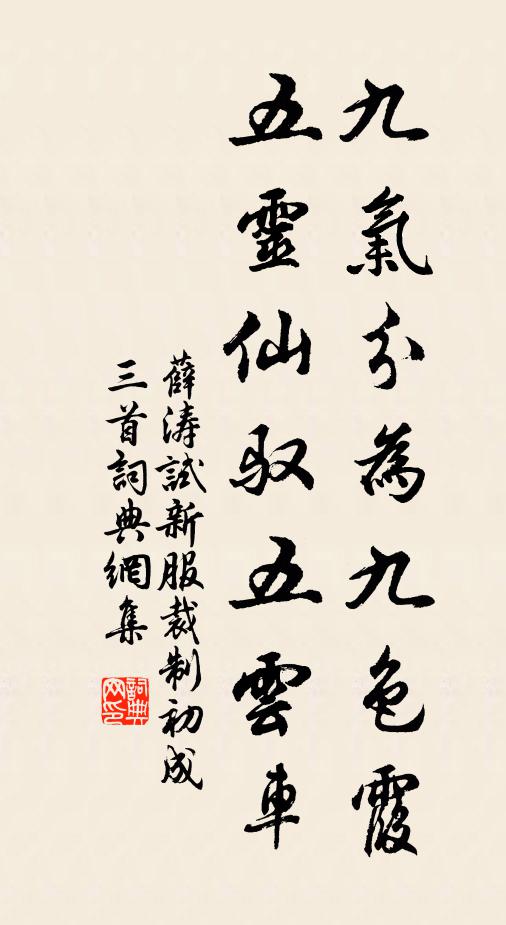 九氣分為九色霞
五靈仙馭五雲車
薛濤試新服裁制初成
三首詞典網集
詞典网印